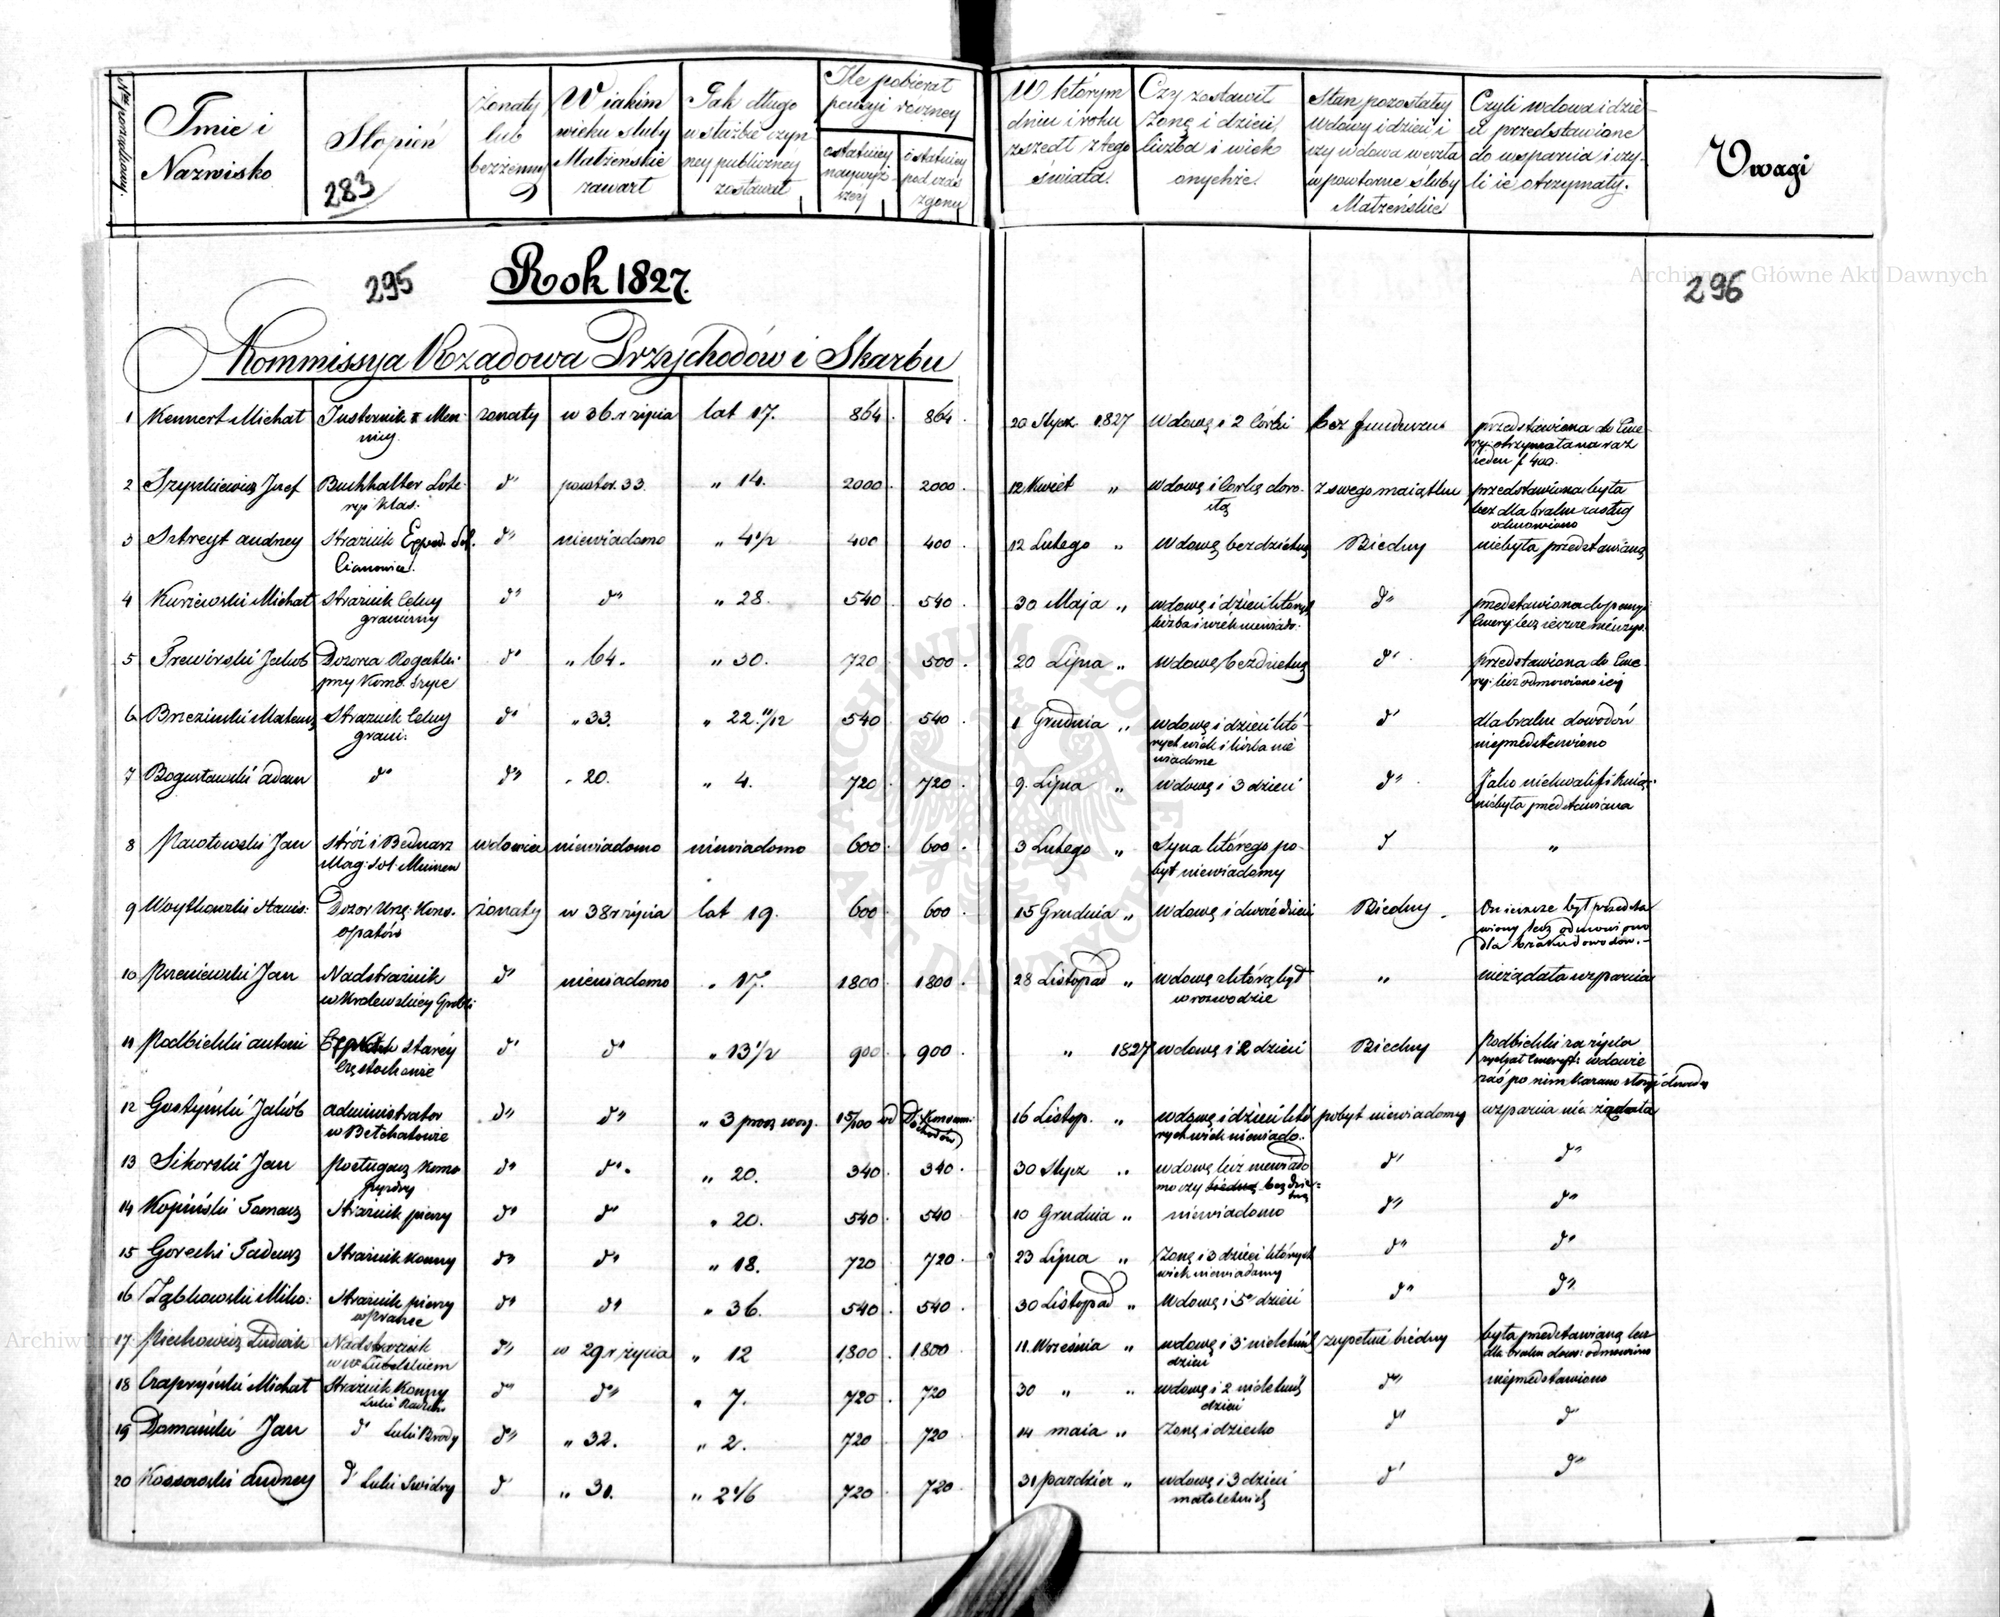 Nro porządkowy.
Imie i Nazwisko
Stopień
283
żonaty lub bezżenny
W iakim wieku śluby Małżeńskie zawarł
Jak długo w służbie czynney publiczney zostawał
Ile pobierał pensyi roczney
ostatniey naywyższey
ostatniey podczas zgonu
W którym dniu i roku zszedł z tego świata.
Czy zostawił żonę i dzieci, liczba i wiek onychże.
Stan pozostałey Wdowy i dzieci i czy wdowa weszła w powtorne śluby Małżeńskie
Czyli wdowa i dzieci przedstawione do wsparcia i czyli ie otrzymały.
Uwagi
295
Rok 1827.
296
Kommissya Rządowa Przychodów i Skarbu
1 Kennert Michał Mennicy żonaty w 36 r życia lat 17. 864 864 20 Stycz 1827 Wdowę i 2 Córki bez funduszu przedstawiona do Emery: otrzymała na raz ieden f 400.
2 Józef Buchhalter Loteryi Klas: d° powtor. 33. " 14. 2000 2000 12 Kwiet " wdowę i Corkę dorosłą z swego maiątku przedstawiona była lecz dla braku zasług odmowiono
3 Sztreyt Andrzey Strażnik d° niewiadomo " 4 1/2 400 400 12 Lutego " Wdowę bezdzietną Biedny niebyła przedstawioną
4 Kurzewski Michał Strażnik Celny graniczny d° d° " 28. 540 540 30 Maja " wdowę i dzieci których liczba i wiek niewiado: d°
5 Jakub Dozorca Rogatki przy Komo: d° " 64. " 30. 720 500 20 Lipca " Wdowę bezdzietną d° przedstawiona do Emery: lecz odmowiono iey
6 Brzeziński Mateusz Strażnik Celny grani: d° " 33. " 22. 11/12 540 540 1 Grudnia " wdowę i dzieci których wiek i liczba nie wiadome d° dla braku dowodów nieprzedstawiono
7 Bogusławski Adam d° d° " 20. " 4. 720 720 9. Lipca " wdowę i 3 dzieci d° Jako niekwalifikuią: niebyła przedstawiana
8 Jan Stróż i Bednarz Mag: Sol: wdowiec niewiadomo niewiadomo 600 600 3 Lutego " Syna którego pobyt niewiadomy d "
9 Woytkowski Stanis: Dozor Kons. Opatów żonaty w 38 r życia lat 19. 600 600 15 Grudnia " Wdowę i dwoie dzieci Biedny On ieszcze był przedstawiony lecz odmowiono dla braku dowodów.
10 Jan Nadstrażnik d° niewiadomo " 17. 1800 1800 28 Listopad " wdowę z którą był w rozwodzie " nieżądała wsparcia
11 Podbielski Antoni Starey Częstochowie d° d° " 13 1/2 900 900 " 1827 wdowę i 2 dzieci Biedny Podbielski za życia
12 Gostyński Jakób Administrator w Bełchatowie d° d° " 3 16 Listop. " wdowę i dzieci których wiek niewiado.. pobyt niewiadomy wsparcia nie żądała
13 Sikorski Jan d° d° " 20. 340 340 30 Stycz " wdowę lecz niewiadomo czy biedną bezdzietną d° d°
14 Kopiński Tomasz Strażnik pieszy d° d° " 20. 540 540 10 Grudnia " niewiadomo d° d°
15 Gorecki Tadeusz Strażnik konny d° d° " 18. 720 720 23 Lipca " Żonę i 3 dzieci których wiek niewiadomy d° d°
16 Ząbkowski Miko: Strażnik pieszy d° d° " 36. 540 540 30 Listopad " Wdowę i 5 dzieci d° d°
17. Piechowicz Ludwik Nadstrażnik w W Lubelskiem d° w 29 r życia " 12 1,800 1,800 11. Września " wdowę i 3 nieletnich dzieci zupełnie biedny była przedstawioną lecz dla braku dowo: odmowiono
18 Michał Strażnik Konny d° d° " 7. 720 720 30 " " wdowę i 2 nieletnich dzieci d° nieprzedstawiono
19 Domański Jan d° d° " 32. " 2. 720 720 14 maia " Żonę i dziecko d° d°
20 Kossowski Andrzey d° d° " 30. " 2 1/6 720 720 31 pazdzier " wdowę i 3 dzieci małoletnich d° d°
Archiwum Główne Akt Dawnych